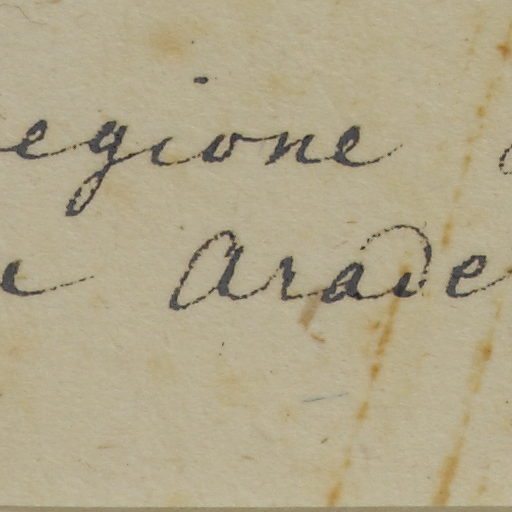 egione
Arade